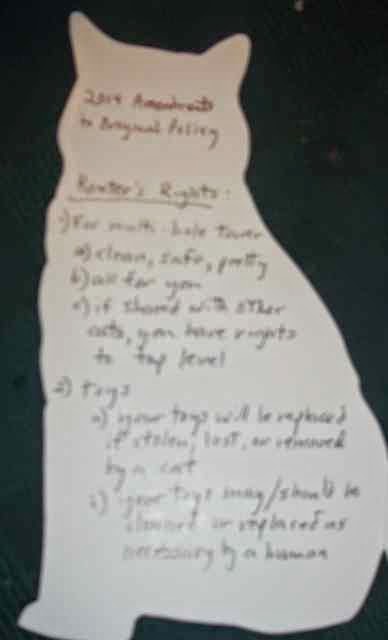 2014 Amendments
to Original Policy
Renter's Rights:
1) For multi-hole tower
a) clean, safe, pretty
b) all for you
c) if shared with other
cats, you have rights
to top level
2) toys
a) your toys will be replaced
if stolen, lost, or removed
by a cat
b) your toys may/should be
cleaned or replaced as
necessary by a human